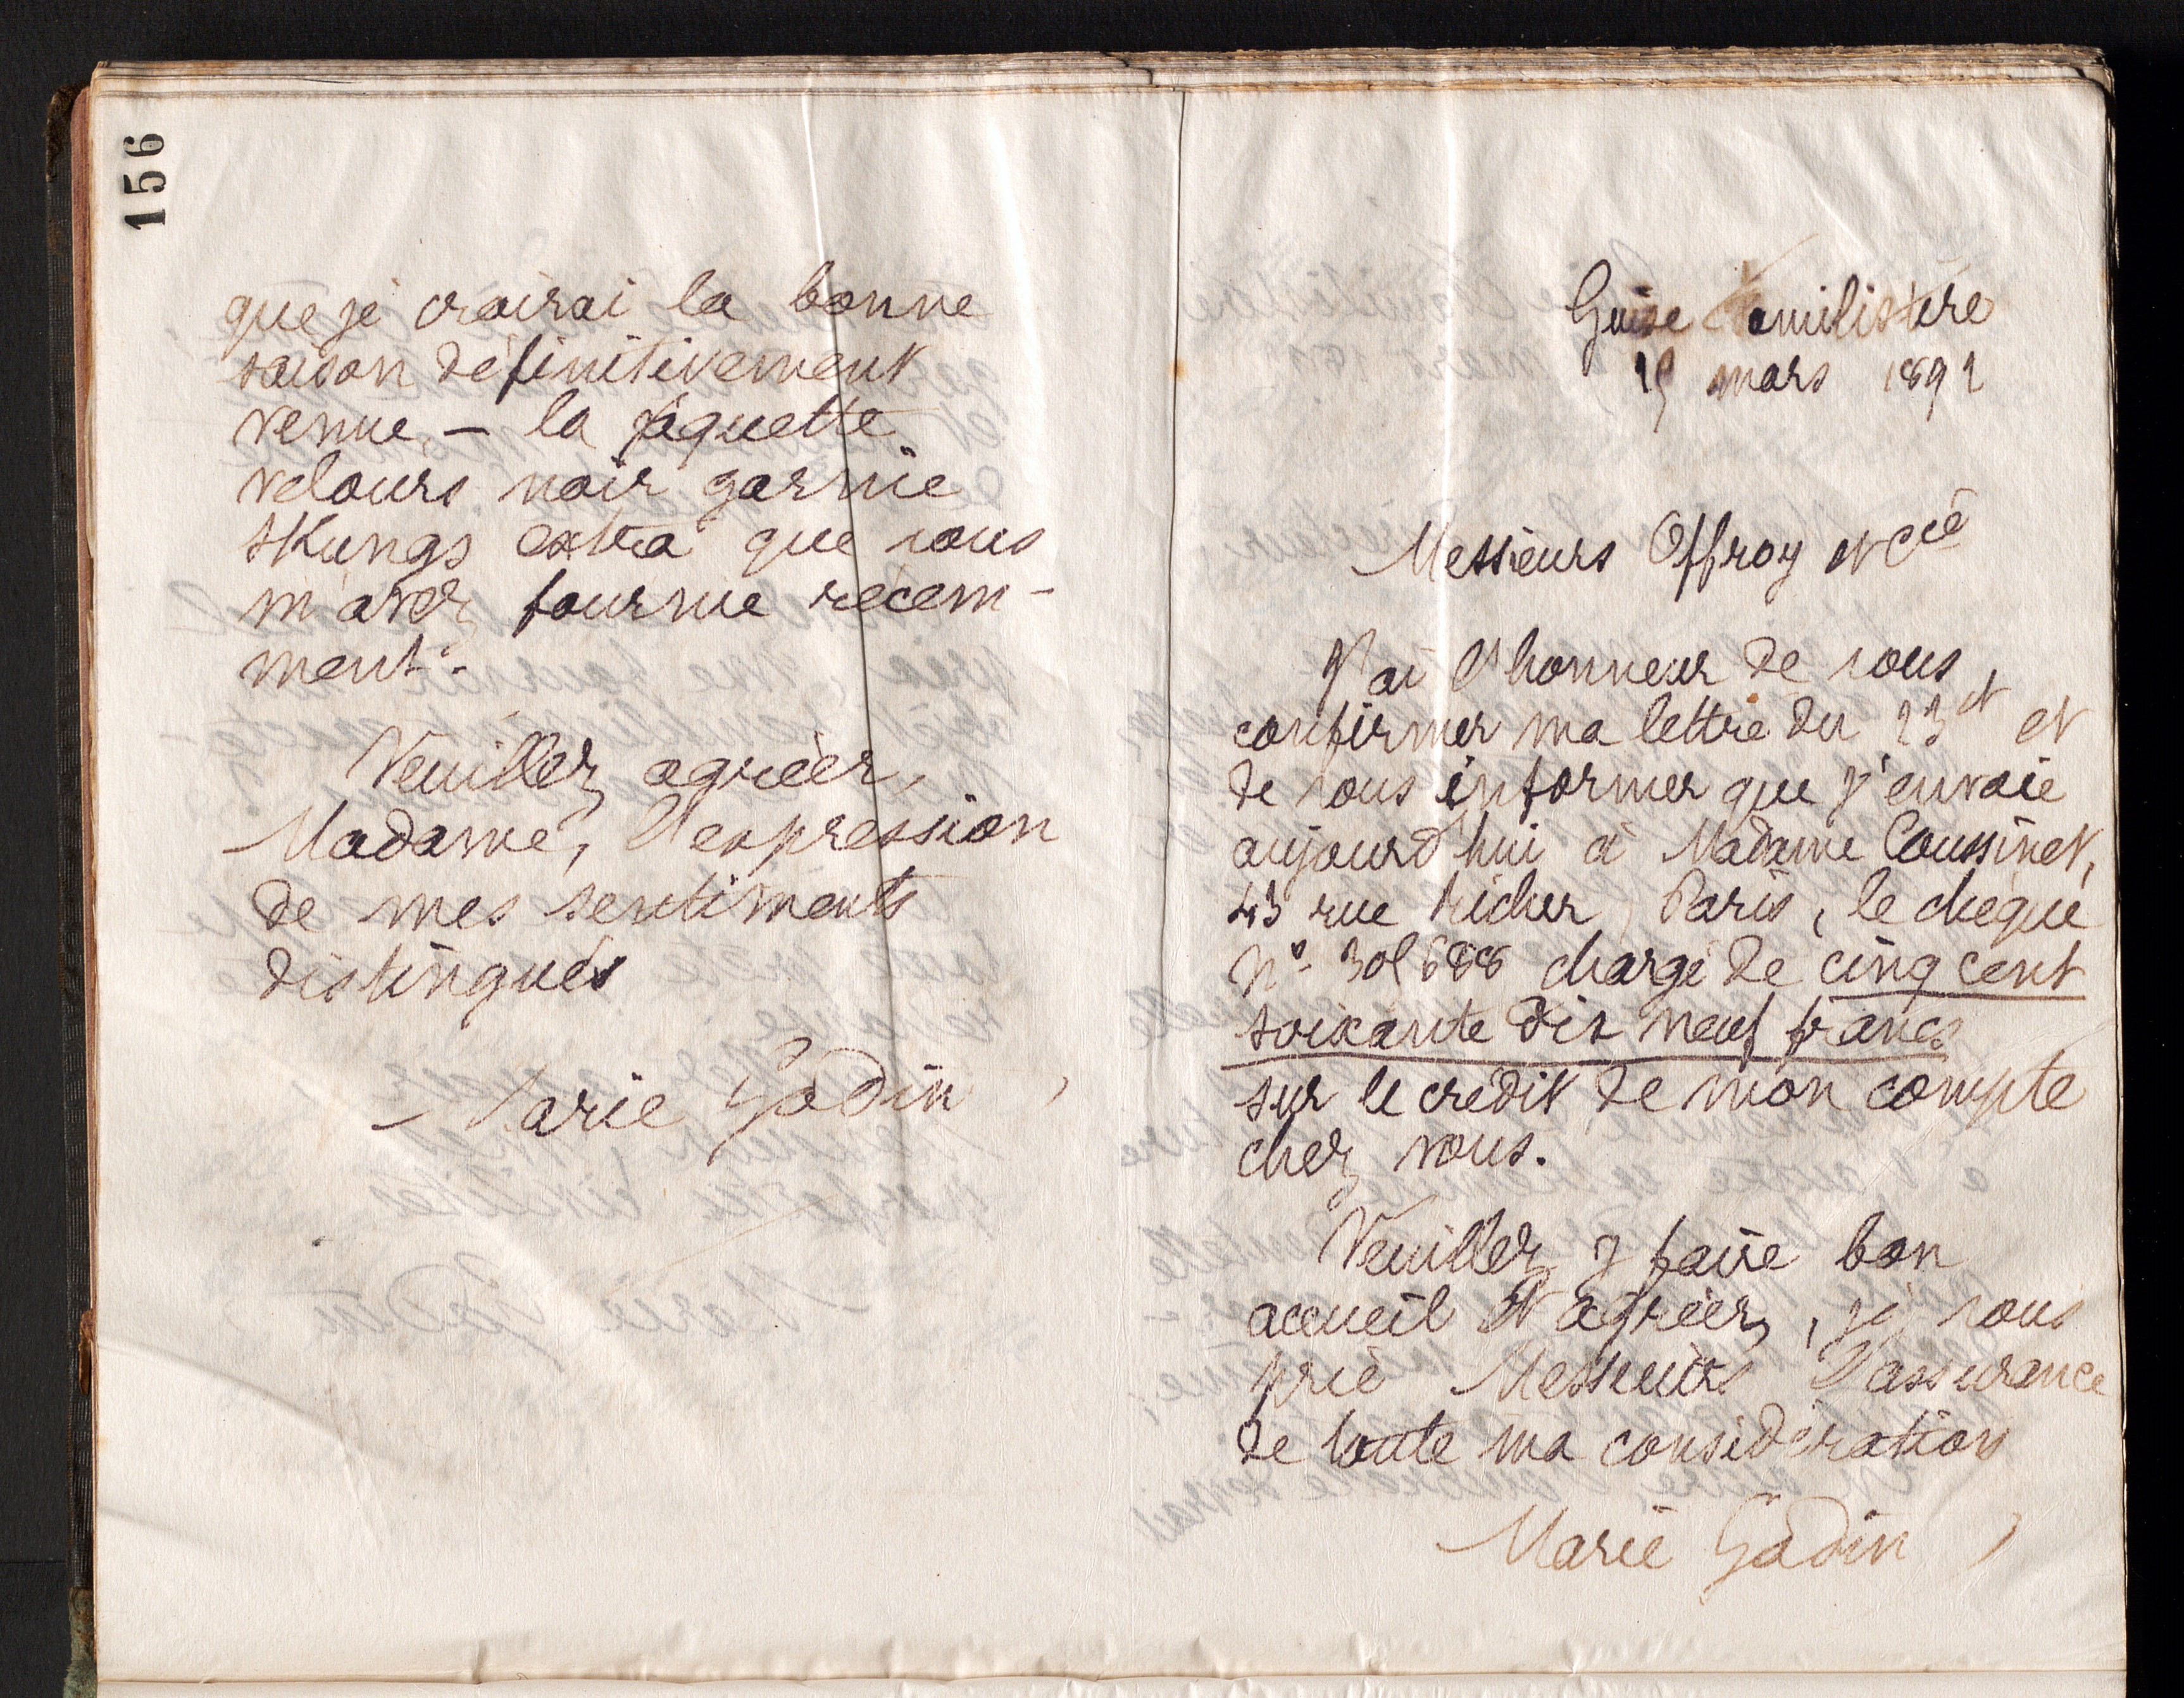 156
que je croirai la bonne
saison définitivement
venue, – la jaquette
velours noir garnie
skungs extra que vous
m'avez fournie récem-
ment.
Veuillez agréer,
Madame, l'expression
de mes sentiments
distingués
Marie Godin
Guise Familistère
mars 1891
Messieurs Offroy et Cie
J'ai l'honneur de vous
confirmer ma lettre du 23 ct et
de vous informer que j'envoie
aujourd'hui à Madame Coussinet,
43 rue Richer, Paris, le chèque
No chargé de cinq cent
soixante dix neuf francs
sur le crédit de mon compte
chez vous.
Veuillez y faire bon
accueil et agréer, je vous
prie Messieurs l'assurance
de toute ma considération
Marie Godin